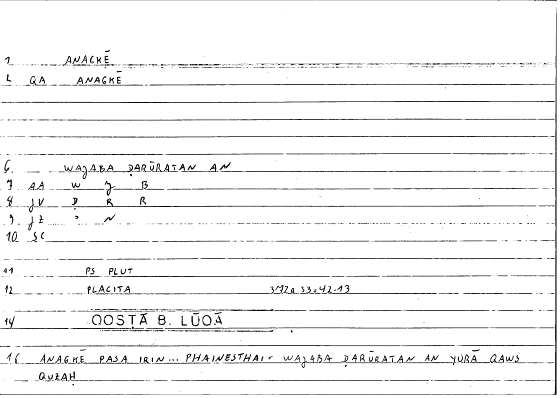 1 ANAGKĒ
2 QA ANAGKĒ
6. WAJABA ḌARŪRATAN AN
7 AA W J B
8 JV Ḍ R R
9. JZ ʾ N
10 SC
11 PS PLUT
12 PLACITA 372a 33.42.13
14 QOSṬĀ B. LŪQĀ
16 ANAGKĒ PASA IRIN... PHAINESTHAI - WAJABA ḌARŪRATAN AN YURĀ QAWS
QUZAḤ